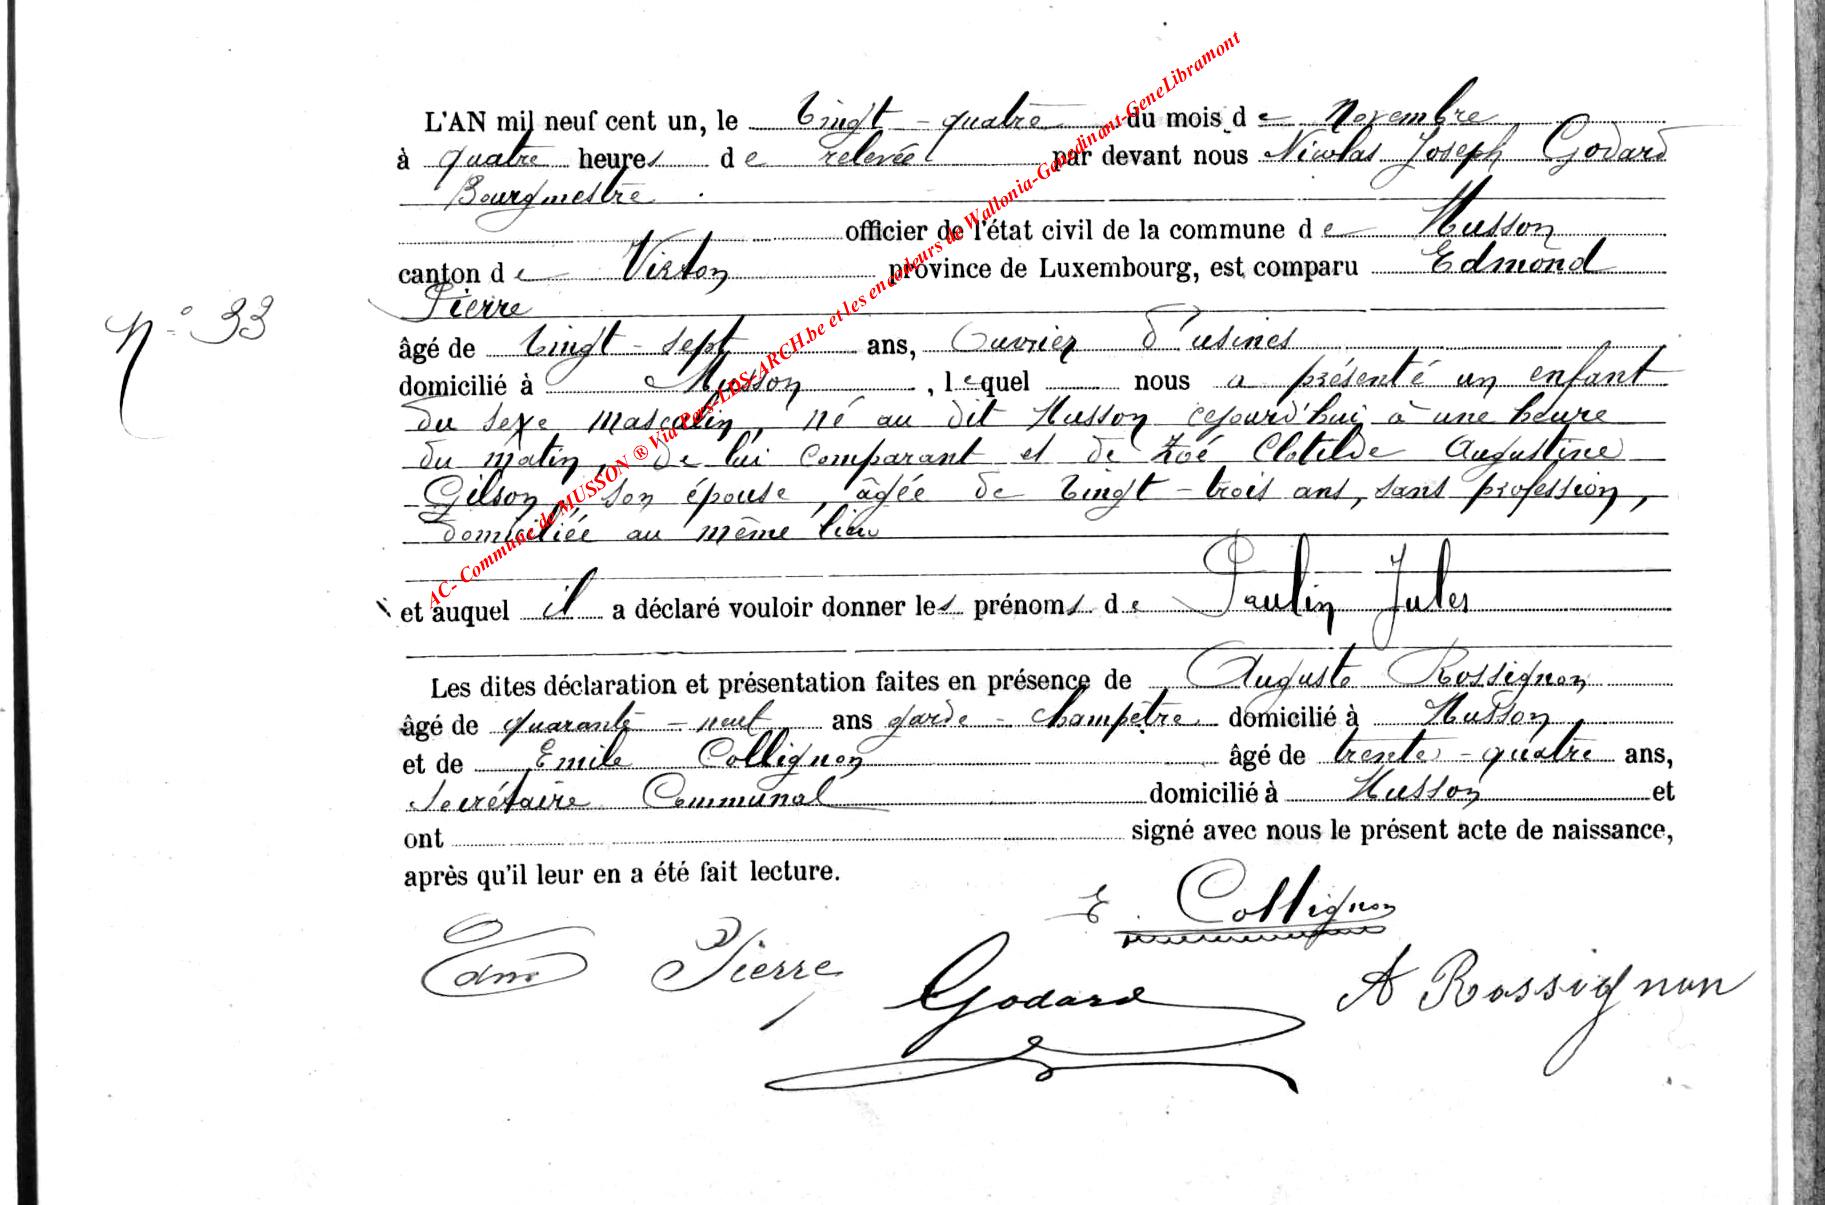 L'AN mil neuf cent un, le vingt-quatre du mois de Novembre
à quatre heures de relevée par devant nous Nicolas Joseph Godard
Bourgmestre
officier de l'état civil de la commune de Musson
canton de Virton province de Luxembourg, est comparu Edmond
Pierre
N° 33
âgé de vingt-sept ans, Ouvrier d'usines
domicilié à Musson, lequel nous a présenté un enfant
du sexe masculin, né au dit Musson cejourd'hui à une heure
du matin, de lui comparant et de Zoé Clotilde Augustine
Gilson, son épouse, âgée de vingt-trois ans, sans profession,
domiciliée au même lieu
et auquel il a déclaré vouloir donner les prénoms de Paulin Jules
Les dites déclaration et présentation faites en présence de Auguste Rossignon
âgé de quarante-neuf ans garde-champêtre domicilié à Musson
et de Emile Collignon âgé de trente-quatre ans,
Secrétaire Communal domicilié à Musson et
ont signé avec nous le présent acte de naissance,
après qu'il leur en a été fait lecture.
E. Collignon
Edm Pierre
Godard
A Rossignon
AC- Commune de MUSSON ® Via Pers-LDS-ARCH.be et les encodeurs de Wallonia-Genedinant-GeneLibramont